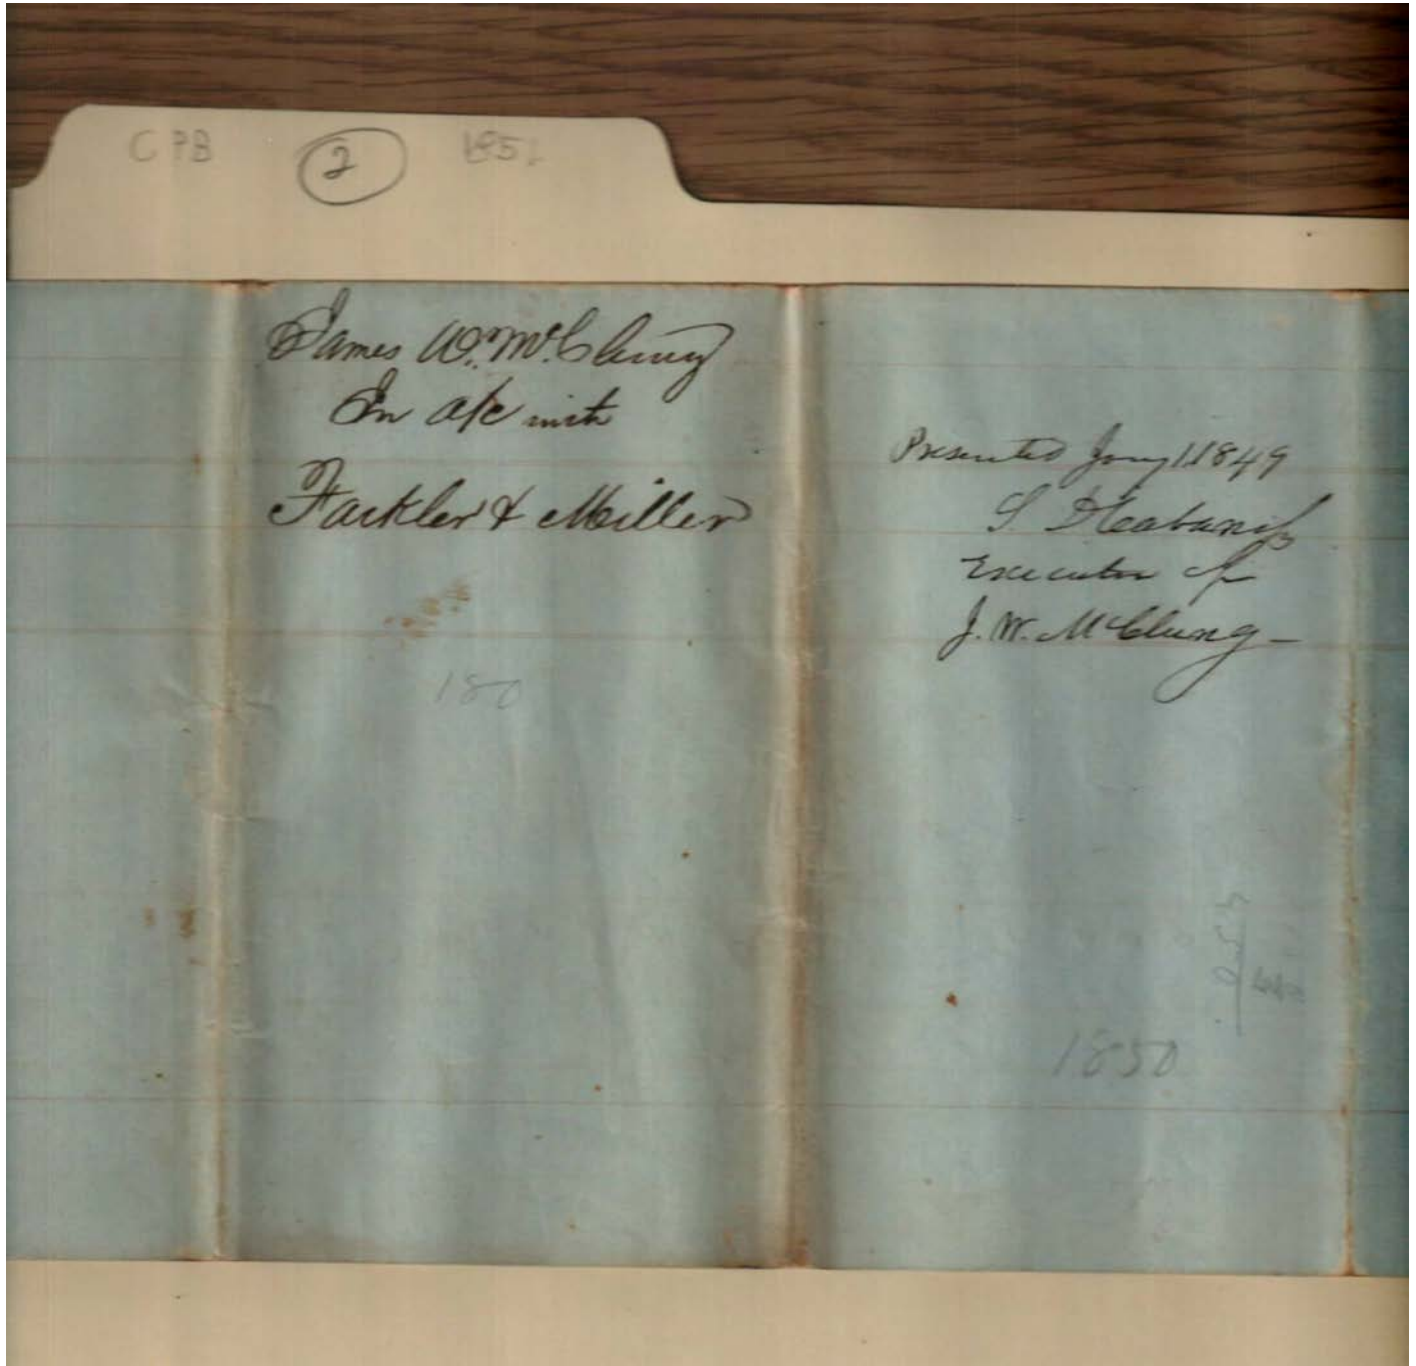 CPB 2 1851
James W. McClung
In a/c with
Fackler & Miller
180
Presented Jany 1 1849
S D Cabaniss
Executor of
J. W. McClung —
1850